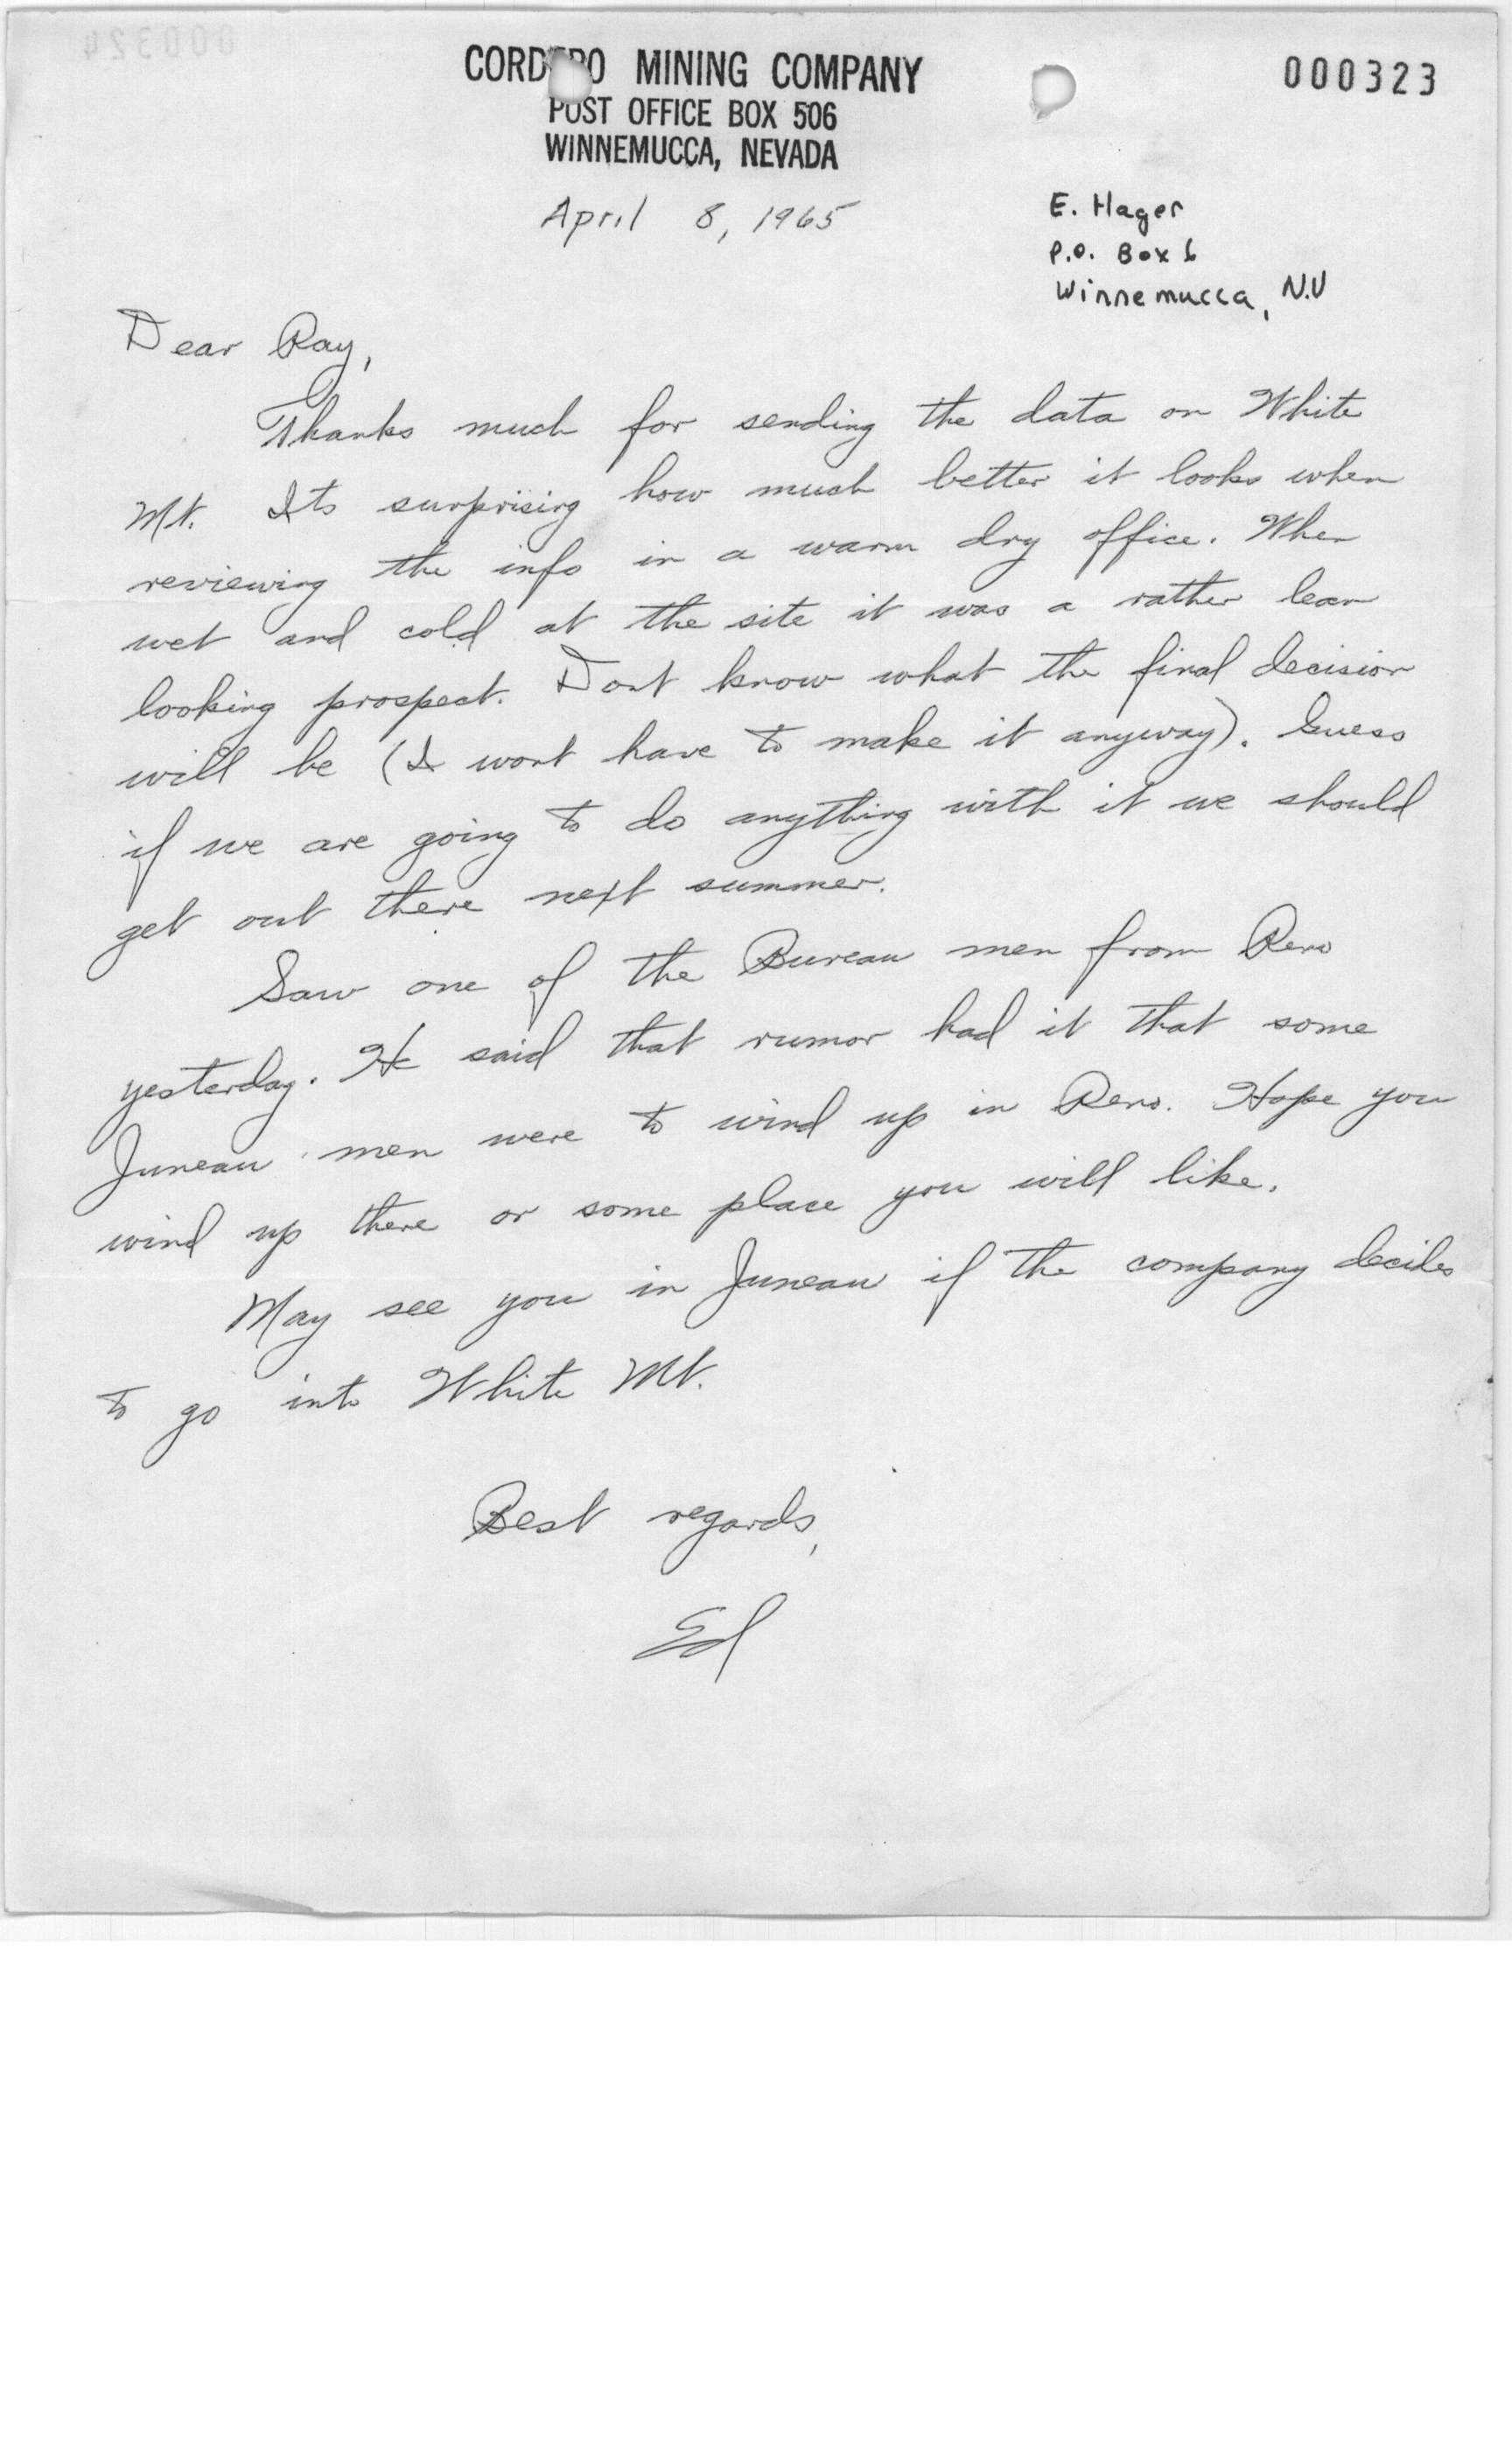 000323
CORDERO MINING COMPANY
POST OFFICE BOX 506
WINNEMUCCA, NEVADA
April 8, 1965
E. Hager
P.O. Box 6
Winnemucca, N.V
Dear Ray,
Thanks much for sending the data on White
Mt. Its surprising how much better it looks when
reviewing the info in a warm dry office. When
wet and cold at the site it was a rather lean
looking prospect. Dont know what the final decision
will be (I wont have to make it anyway). Guess
if we are going to do anything with it we should
get out there next summer.
Saw one of the Bureau men from Reno
yesterday. He said that rumor had it that some
Juneau men were to wind up in Reno. Hope you
wind up there or some place you will like.
May see you in Juneau if the company decides
to go into White Mt.
Best regards,
Ed